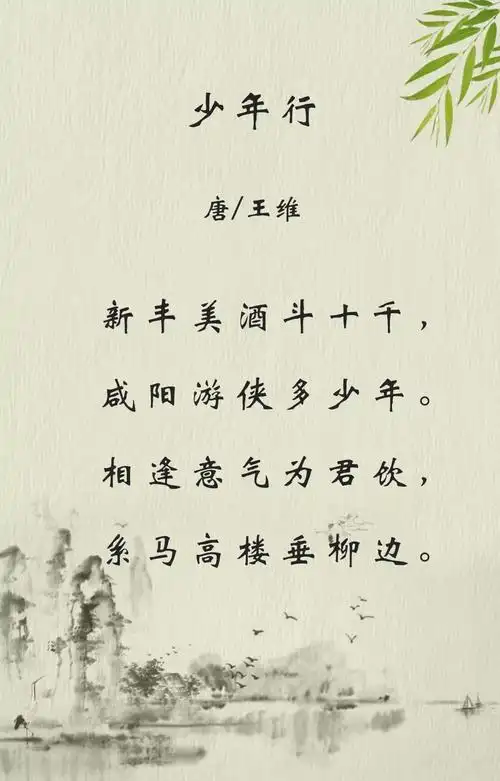 少年行
唐/王维
新丰美酒斗十千，
咸阳游侠多少年。
相逢意气为君饮，
系马高楼垂柳边。